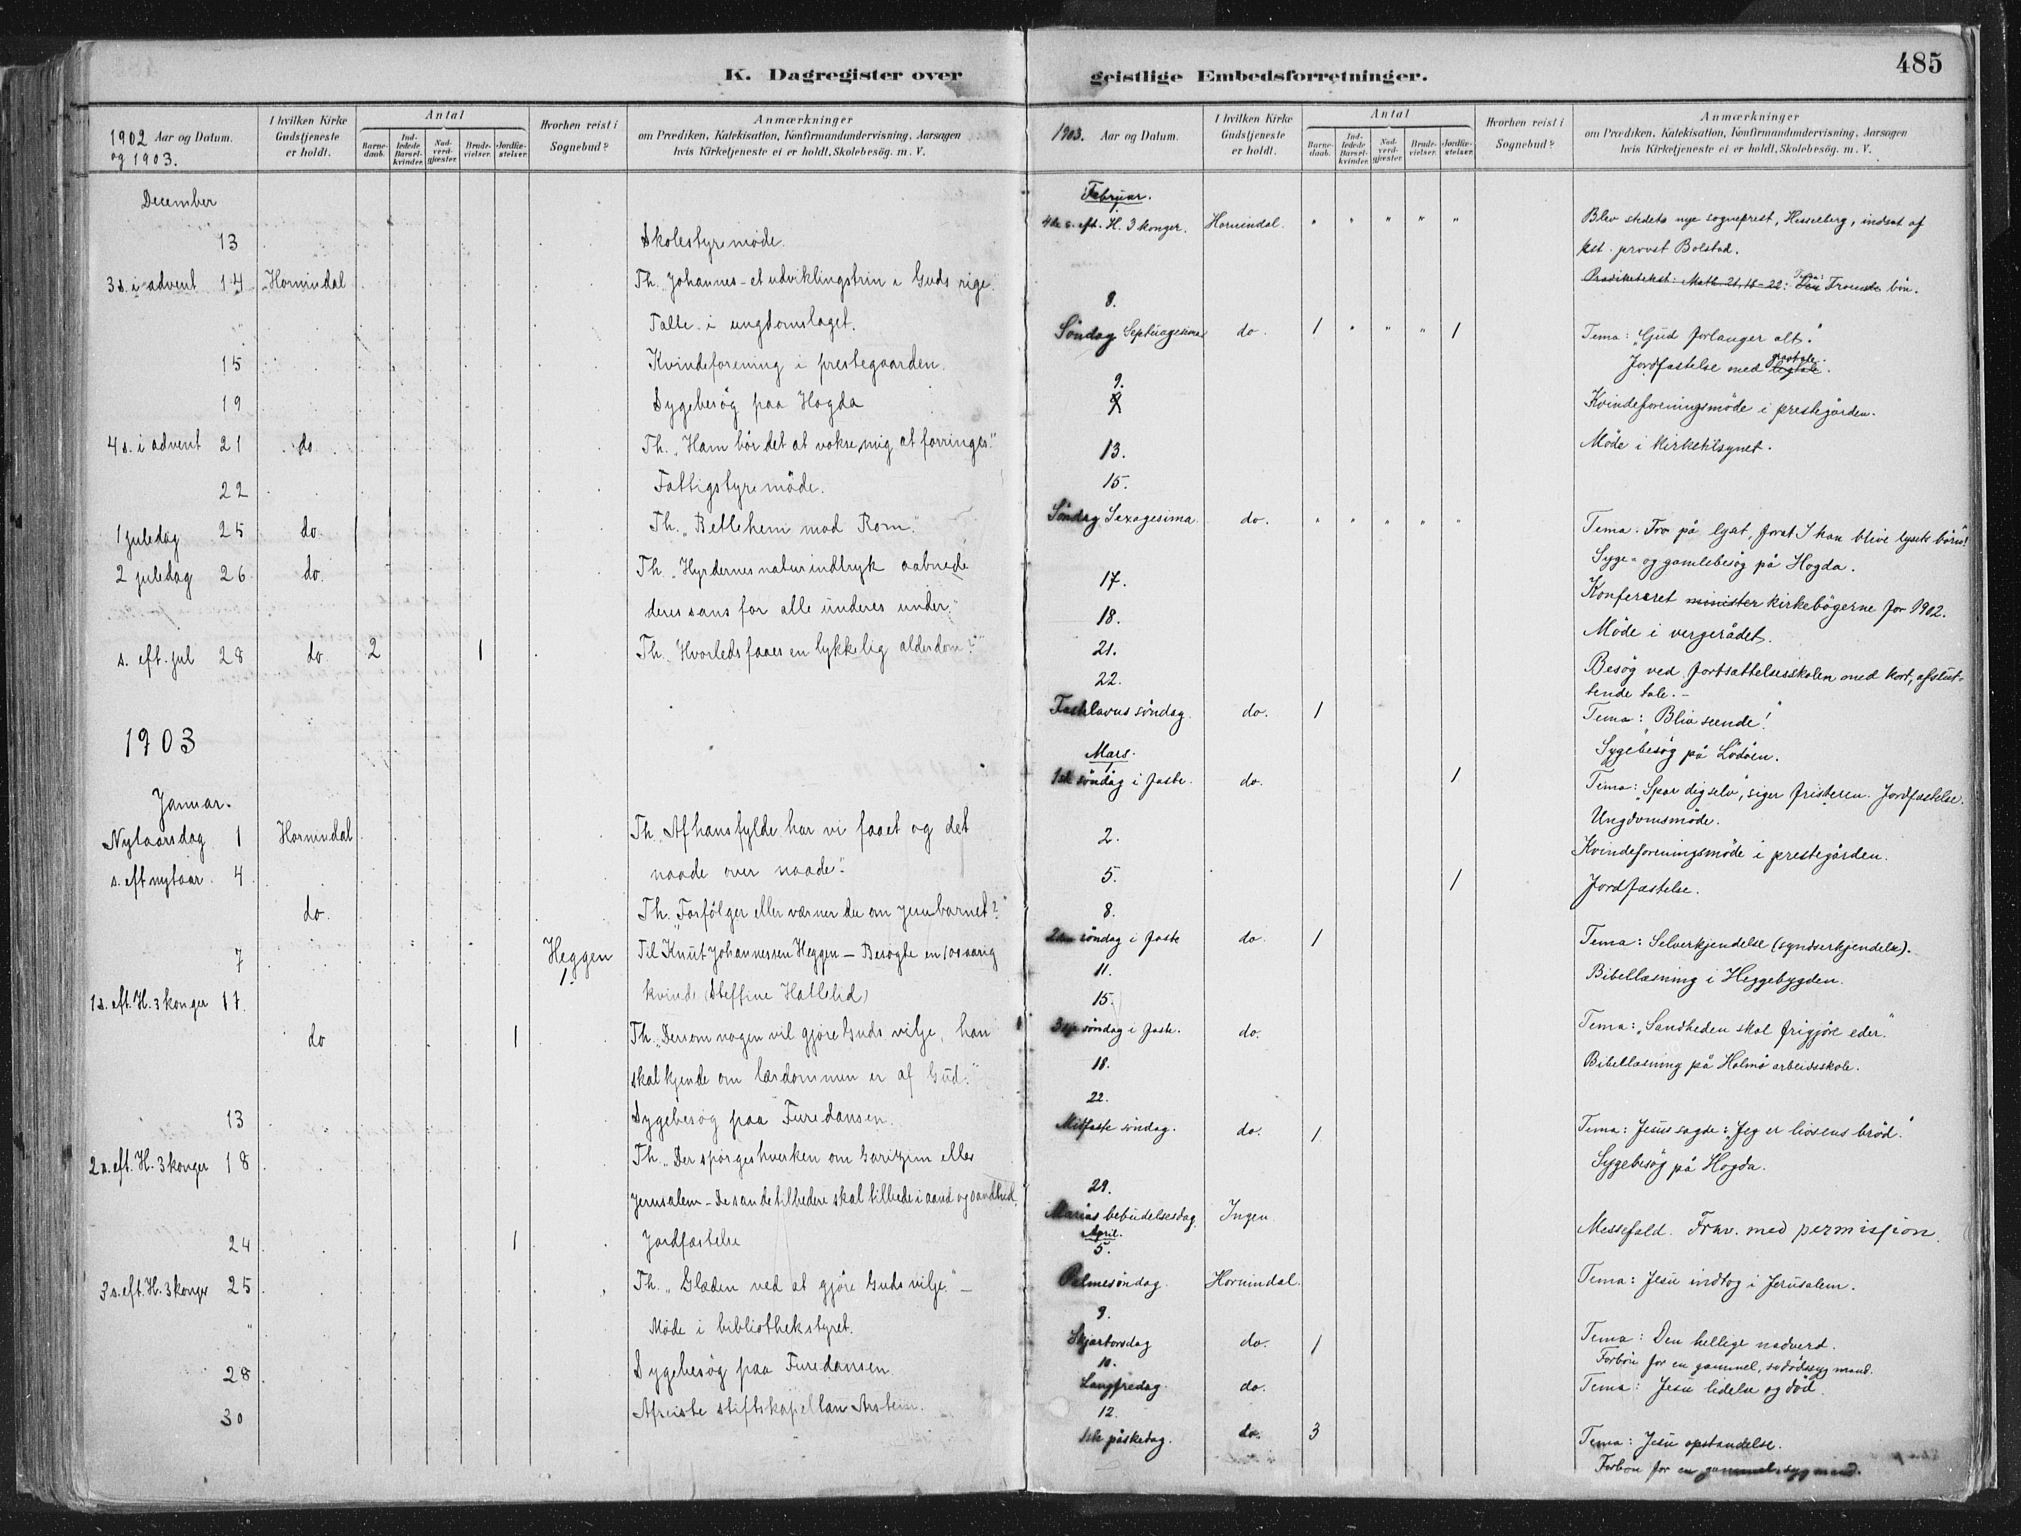 K. Dagregister over
1902 Aar og Datum.
og 1903.
I hvilken Kirke Gudstjeneste er holdt.
Antal
Barne-daab.
Ind-ledede Barsel-kvinder.
Nad-verd-gjæster.
Brude-vielser.
Jordfæ-stelser.
Hvorhen reist i Sognebud?
Anmærkninger
om Prædiken, Katekisation, Konfirmandundervisning, Aarsagen
hvis Kirketjeneste ei er holdt, Skolebesøg. m. V.
December
13 Skolestyremøde.
3 s. i advent 14 Hornindal Th. Johannes - et udviklingstrin i Guds rige.
" Talte i ungdomslaget.
15 Kvindeforening i prestegaarden.
19 Sygebesøg paa Hogda
4 s. i advent 21 do Th. "Ham bør det at vokse, mig at forringes."
22 Fattigstyremøde.
1 juledag 25 do. Th. "Betlehem mod Rom."
2 juledag 26 do. Th. "Hyrdernes naturindtryk aabnede
deres sans for alle underes under."
s. eft. jul 28 do 2 1 Th. "Hvorledes faaes en lykkelig alderdom?"
1903
Januar.
Nytaarsdag 1 Hornindal Th. "Af hans fylde har vi faaet og det
naade over naade".
s. eft nytaar 4
do. Th. "Forfølger eller værner du om Jesubarnet?"
7 Heggen 1. Til Knut Johannessen Heggen - Besøgte en 100aarig
kvinde (Steffine Hallelid)
1 s. eft. H. 3 konger 11.
do 1 Th. "Dersom nogen vil gjøre Guds vilje, han
skal kjende om lærdommen er af Gud."
13 Sygebesøg paa Furedansen.
2 s. eft. H. 3 konger 18 Th. "Der spørges hverken om Garitzim eller
Jerusalem - De sande tilbedere skal tilbede i aand og sandhed.
24 1 Jordfæstelse
3 s. eft. H. 3 konger 25 Th. "Glæden ved at gjøre Guds vilje." -
" Møde i bibliothekstyret.
28 Sygebesøg paa Furedansen
30 Afreiste stiftskapellan Arstein.
geistlige Embedsforretninger.
485
1903. Aar og Datum.
I hvilken Kirke Gudstjeneste er holdt.
Antal
Barne-daab.
Ind-ledede Barsel-kvinder.
Nad-verd-gjæster.
Brude-vielser.
Jordfæ-stelser.
Hvorhen reist i Sognebud?
Anmærkninger
om Prædiken, Katekisation, Konfirmandundervisning, Aarsagen
hvis Kirketjeneste ei er holdt, Skolebesøg. m. V.
Februar.
4de s. eft. H. 3 konger. Hornindal. " " " " " Blev stedets nye sogneprest, Hesselberg, indsat af
kst. provst Bolstad.
Prædiketekst: Math. 21, 18-22: Tema: Troende bøn.
8.
Søndag Septuagesima do. 1 " " " 1 Tema: "Gud forlanger alt."
Jordfæstelse med ligtale gravtale.
9. Kvindeforeningsmøde i prestegården.
13. Møde i kirketilsynet.
15.
Søndag Sexagesima do. " " " " " Tema. Tro på lyset, forat I kan blive lysets børn!
Syge- og gamlebesøg på Hogda.
17. Konfereret minister kirkebøgerne for 1902.
18. Møde i vergerådet.
21. Besøg ved fortsættelsesskolen med kort, afslut-
tende tale. -
22.
Fastelavns søndag. do. 1 Tema: "Bliv seende!"
Sygebesøg på Lødøen.
Mars.
1.
1ste søndag i faste. do. 1 Tema: "Spar dig selv", siger fristeren. Jordfæstelse.
Ungdomsmøde.
2. Kvindeforeningsmøde i prestegården.
5. 1 Jordfæstelse.
8.
2den søndag i faste do. 1 Tema: Selverkjendelse (syndserkjendelse).
11. Bibellæsning i Heggebygden.
15.
3die søndag i faste. do. Tema: "Sandheden skal frigjøre eder."
18. Bibellæsning på Holmø arbeidsskole.
22.
Midfaste søndag. do. 1 Tema: Jesus sagde: "Jeg er livsens brød."
Sygebesøg på Hogda.
29.
Marias bebudelsesdag Ingen. Messefald. Frav. med permission.
April.
5.
Palmesøndag. Hornindal. Tema: Jesu indtog i Jerusalem.
9.
Skjærtorsdag do. 1 Tema: Den hellige nadverd.
Forbøn for en gammel, sodødssyg mand.
10.
Langfredag. do. Tema: Jesu lidelse og død.
12.
1ste påskedag. do. 3 Tema: Jesu opstandelse.
Forbøn for en gammel, syg mand.